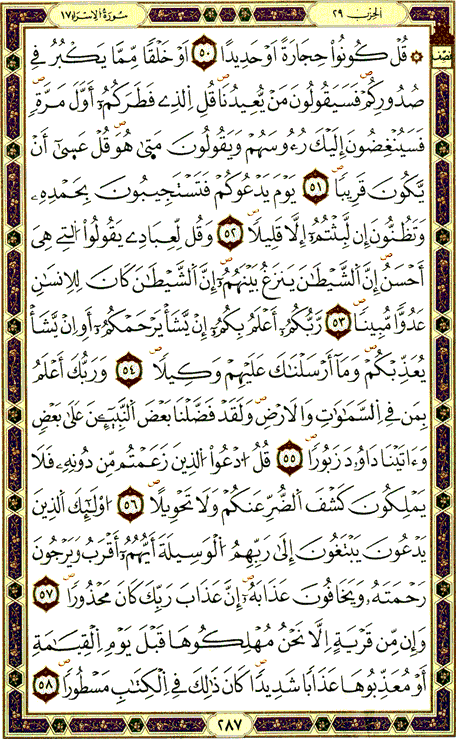 سُورَةُ الإسْرَاء ١٧ الحزب ٢٩
نصف
۞ قُلْ كُونُواْ حِجَارَةً اَوْ حَدِيدًا ٥٠ اَوْ خَلْقًا مِّمَّا يَكْبُرُ فِے
صُدُورِكُمْ فَسَيَقُولُونَ مَنْ يُّعِيدُنَا قُلِ اِلذِے فَطَرَكُمُۥٓ أَوَّلَ مَرَّةٍ
فَسَيُنْغِضُونَ إِلَيْكَ رُءُوسَهُمْ وَيَقُولُونَ مَتَىٰ هُوَ قُلْ عَسَىٰٓ أَنْ
يَّكُونَ قَرِيبًا ٥١ يَوْمَ يَدْعُوكُمْ فَتَسْتَجِيبُونَ بِحَمْدِهِۦ
وَتَظُنُّونَ إِن لَّبِثْتُمُۥٓ إِلَّا قَلِيلًا ٥٢ وَقُل لِّعِبَادِے يَقُولُواْ اُلتِے هِيَ
أَحْسَنُ إِنَّ اَلشَّيْطَٰنَ يَنزَغُ بَيْنَهُمُۥٓ إِنَّ اَلشَّيْطَٰنَ كَانَ لِلْإِنسَٰنِ
عَدُوًّا مُّبِينًا ٥٣ رَّبُّكُمُۥٓ أَعْلَمُ بِكُمُۥٓ إِنْ يَّشَأْ يَرْحَمْكُمُۥٓ أَوِ اِنْ يَّشَأْ
يُعَذِّبْكُمْ وَمَآ أَرْسَلْنَٰكَ عَلَيْهِمْ وَكِيلًا ٥٤ وَرَبُّكَ أَعْلَمُ
بِمَن فِے اِلسَّمَٰوَٰتِ وَالَارْضِ وَلَقَدْ فَضَّلْنَا بَعْضَ اَلنَّبِيٓـِٕۧنَ عَلَىٰ بَعْضٍ
وَءَاتَيْنَا دَاوُۥدَ زَبُورًا ٥٥ قُلُ اُدْعُواْ اُلذِينَ زَعَمْتُم مِّن دُونِهِۦ فَلَا
يَمْلِكُونَ كَشْفَ اَلضُّرِّ عَنكُمْ وَلَا تَحْوِيلًا ٥٦ اُوْلَٰٓئِكَ اَلذِينَ
يَدْعُونَ يَبْتَغُونَ إِلَىٰ رَبِّهِمُ اُلْوَسِيلَةَ أَيُّهُمُۥٓ أَقْرَبُ وَيَرْجُونَ
رَحْمَتَهُۥ وَيَخَافُونَ عَذَابَهُۥٓ إِنَّ عَذَابَ رَبِّكَ كَانَ مَحْذُورًا ٥٧
وَإِن مِّن قَرْيَةٍ اِلَّا نَحْنُ مُهْلِكُوهَا قَبْلَ يَوْمِ اِلْقِيَٰمَةِ
أَوْ مُعَذِّبُوهَا عَذَابًا شَدِيدًا كَانَ ذَٰلِكَ فِے اِلْكِتَٰبِ مَسْطُورًا ٥٨
٢٨٧